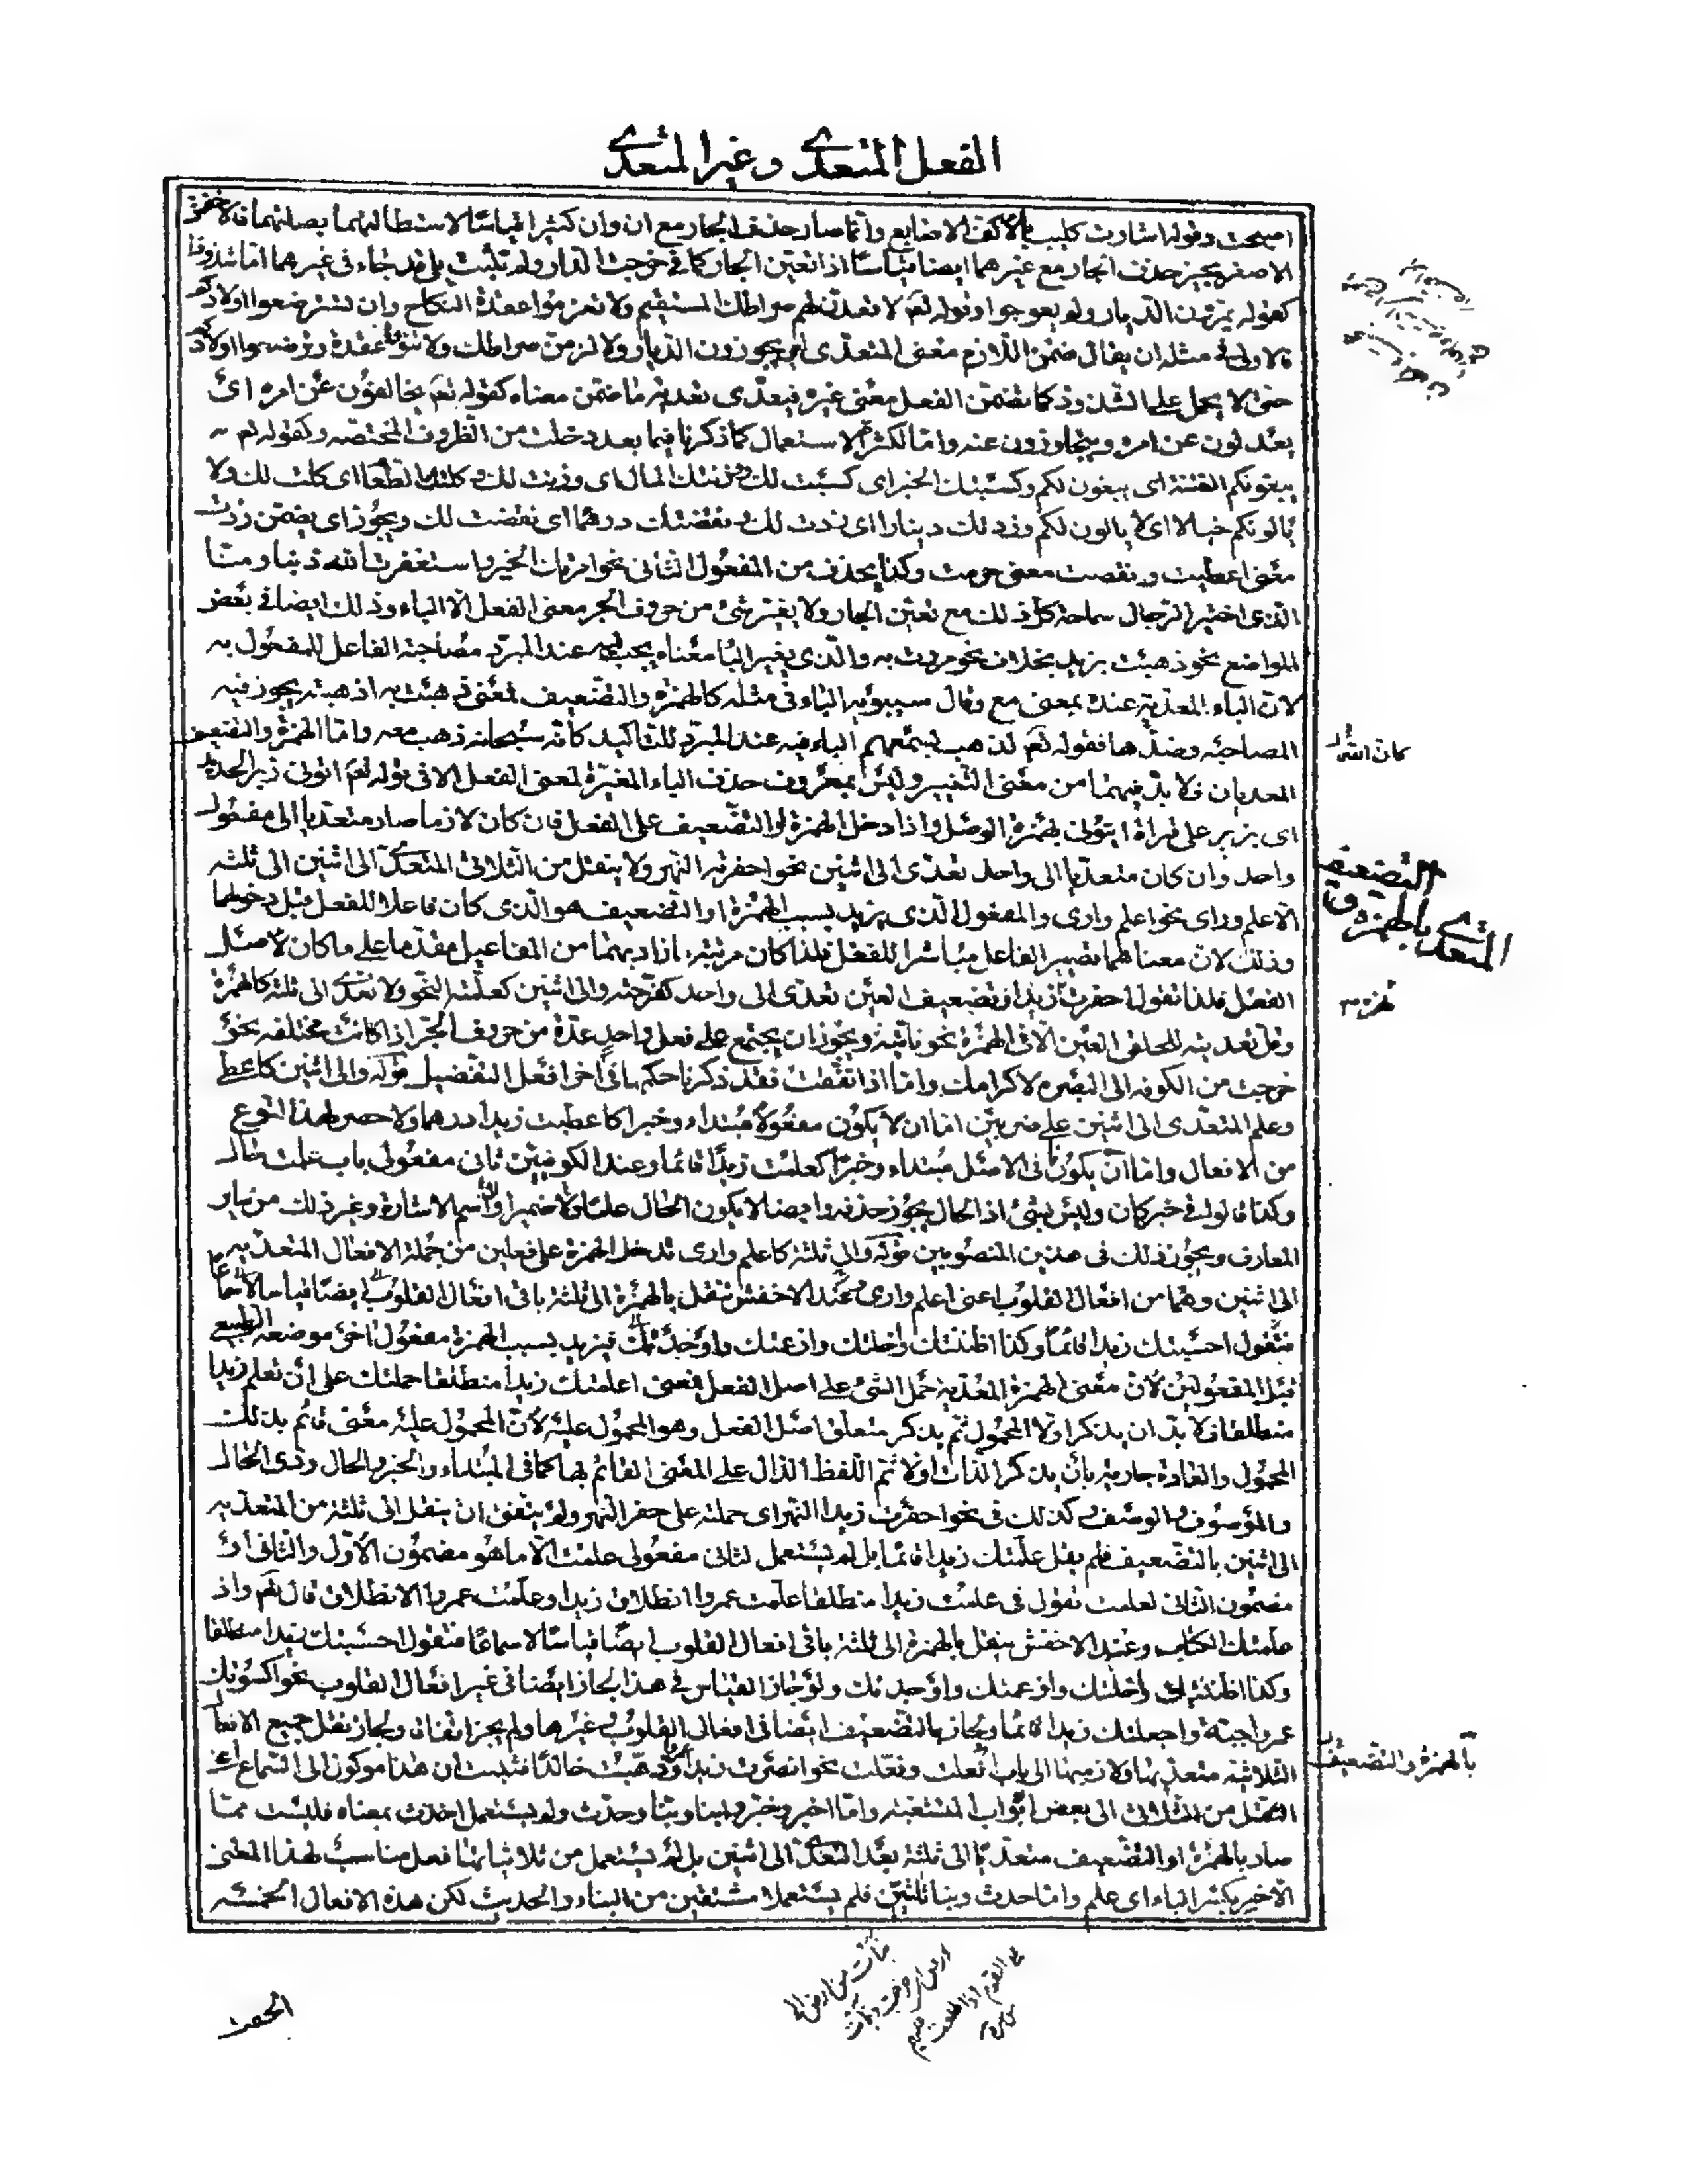 الفعل المتعدى وغير المتعدى
اصبحت وقوله اشارت كليب بالاكف الاصابع وانما صار حذف الجار مع ان وان كثيرا قياسا لاستطالتهما بصلتهما فالاخفش
الاصغر يجيز حذف الجار مع غيرهما ايضا قياسا اذا تعين الجار كما فى خرجت الدار ولم يثبت بلى قد جاء فى غيرهما اما شذوذا
كقوله تمرون الديار ولم تعوجوا وقوله تعم لاقعدن لهم صراطك المستقيم ولا تعزموا عقدة النكاح وان تسترضعوا اولادكم
فالاولى فى مثله ان يقال ضمن اللازم معنى المتعدى اى يجوزون الديار ولالزمن صراطك ولا تنووا عقدة وترضعوا اولادكم
حتى لا يحمل على الشذوذ كما تضمن الفعل معنى غيره فيعدى تعدية ما ضمن معناه كقوله تعم يخالفون عن امره اى
يعدلون عن امره ويتجاوزون عنه واما لكثرة الاستعمال كما ذكرنا فيما بعد دخلت من الظروف المختصه وكقوله تعم
يبغونكم الفتنة اى يبغون لكم وكسبتك الخير اى كسبت لك ووزنتك المال اى وزنت لك وكلتك الطعام اى كلت لك ولا
يألونكم خبالا اى لا يالون لكم وزدتك دينارا اى زدت لك ونقصتك درهما اى نقصت لك ويجوز اى يضمن زدت
معنى اعطيت ونقصت معنى حرمت وكذا يحذف من المفعول الثانى نحو امرتك الخير واستغفرت الله ذنبا ومنا
الذى اختير الرجال سماحة كل ذلك مع تعين الجار ولا يغير شئ من حروف الجر معنى الفعل الا الباء وذلك ايضا فى بعض
المواضع نحو ذهبت بزيد بخلاف نحو مررت به والذى يغير الباء معناه يجب فيه عند المبرد مصاحبة الفاعل للمفعول به
لان الباء المعدية عنده بمعنى مع وقال سيبويه الباء فى مثله كالهمزة والتضعيف فمعنى ذهبت به اذهبته يجوز فيه
المصاحبة وضدها فقوله تعم لذهب بسمعهم الباء فيه عند المبرد للتاكيد كأنه سبحانه ذهب معه واما الهمزة والتضعيف
كان الله
المعديان فلا بد فيهما من معنى التغيير وليس بمعروف حذف الباء المغيرة لمعنى الفعل الا فى قوله تعم اتونى زبر الحديد
اى بزبر على قراءة ايتونى بهمزة الوصل واذا دخل الهمزة او التضعيف على الفعل فان كان لازما صار متعديا الى مفعول
واحد وان كان متعديا الى واحد تعدى الى اثنين نحو احفرته النهر ولا ينقل من الثلاثى المتعدى الى اثنين الى ثلثه
الا علم وراى نحو اعلم وارى والمفعول الذى يزيد بسبب الهمزة او التضعيف هو الذى كان فاعلا للفعل قبل دخولهما
المتعدى بالهمزة والتضعيف
وذلك لان معناهما تصيير الفاعل مباشرا للفعل فلذا كان مرتبة ما زاد بهما من المفاعيل مقدما على ما كان لاصل
الفعل فلذا تقول احفرت زيدا وتضعيف العين تعدى الى واحد كفرحته والى اثنين كعلمته النحو ولا تعدى الى ثلثة كالهمزة
وقل تعديته للحلقى العين الا فى الهمزة نحو نأيته ويجوز ان يجتمع على فعل واحد عدة من حروف الجر اذا كانت مختلفه نحو
خرجت من الكوفه الى البصره لاكرامك واما اذا تفقت فقد ذكرنا حكمها فى آخر افعل التفضيل قوله والى اثنين كاعطى
وعلم المتعدى الى اثنين على ضربين اما ان لا يكون مفعولاه مبتداء وخبرا كاعطيت زيدا درهما ولا حصر لهذا النوع
من الافعال واما ان يكونا فى الاصل مبتداء وخبرا كعلمت زيدا قائما وعند الكوفيين ثانى مفعولى باب علمت حال
وكذا قالوا فى خبر كان وليس بشئ اذ الحال يجوز حذفه وايضا لا يكون الحال علما ولا ضميرا ولا اسم الاشارة وغير ذلك من ساير
المعارف ويجوز ذلك فى هذين المنصوبين قوله والى ثلثة كاعلم وارى تدخل الهمزة على فعلين من جملة الافعال المتعديه
الى اثنين وهما من افعال القلوب اعنى اعلم وارى وعند الاخفش تنقل بالهمزة الى ثلثة باقى افعال القلوب ايضا قياسا لا سماعا
فتقول احسبتك زيدا قائما وكذا اظننتك واخلتك وازعمتك واوجدتك فيزيد بسبب الهمزة مفعول اخر موضعه الطبيعى
قبل المفعولين لان معنى الهمزة المعدية حمل الشئ على اصل الفعل فمعنى اعلمتك زيدا منطلقا حملتك على ان تعلم زيدا
منطلقا فلا بد ان يذكر اولا المحمول ثم يذكر متعلق اصل الفعل وهو المحمول عليه لان المحمول عليه معنى قائم بذلك
المحمول والعادة جارية بان يذكر الذات اولا ثم اللفظ الدال على المعنى القائم بها كما فى المبتداء والخبر والحال وذى الحال
والموصوف والوصف وكذلك فى نحو احفرت زيدا النهر اى حملته على حفر النهر ولم يتفق ان ينقل الى ثلثة من المتعديه
الى اثنين بالتضعيف فلم يقل علمتك زيدا قائما بل لم يستعمل لثانى مفعولى علمت الا ما هو مضمون الاول والثانى او
مضمون الثانى لعلمت تقول فى علمت زيدا منطلقا علمت عمروا انطلاق زيد وعلمت عمروا الانطلاق قال تعم واذ
علمتك الكتاب وعند الاخفش ينقل بالهمزة الى ثلثة باقى افعال القلوب ايضا قياسا لا سماعا فتقول احسبتك زيدا منطلقا
وكذا اظننتك واخلتك وازعمتك واوجدتك ولو جاز القياس فى هذا لجاز ايضا فى غير افعال القلوب نحو اكسوتك
عمرا جبة واجعلتك زيدا قائما ولجاز بالتضعيف ايضا فى افعال القلوب وغيرها ولم يجز اتفاقا ولجاز نقل جميع الافعال
الثلاثية متعديها ولازمها الى باب افعلت وفعلت نحو انصرت زيدا عمروا وذهبت خالدا فثبت ان هذا موكول الى السماع اعنى
بالهمزة والتضعيف
النقل من الثلاثى الى بعض ابواب المنشعبة واما اخبر وخبر وانبا ونبا وحدث ولم يستعمل احدث بمعناه فليست مما
صار بالهمزة او التضعيف متعديا الى ثلثة بعد التعدى الى اثنين بل لم يستعمل من ثلاثياتها فعل مناسب لهذا المعنى
الا خبر بكسر الباء اى علم واما حدث ونبا ثلثيين فلم يستعملا مشتقين من النباء والحديث لكن هذه الافعال الخمسة